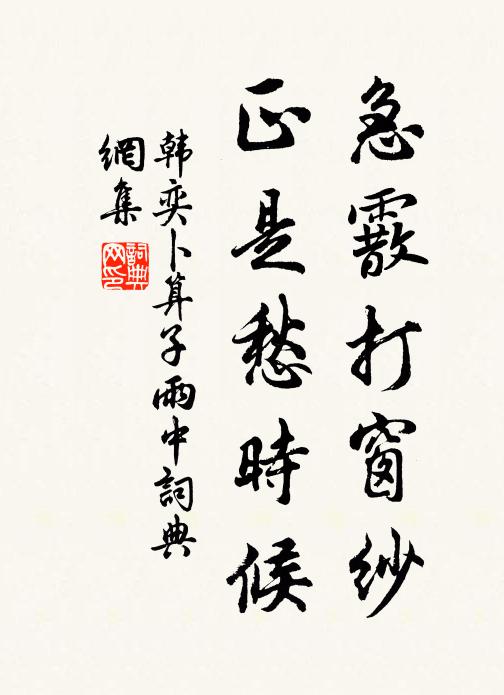 急霰打窗紗
正是愁時候
韩奕卜算子雨中詞典
網集
詞典
网印